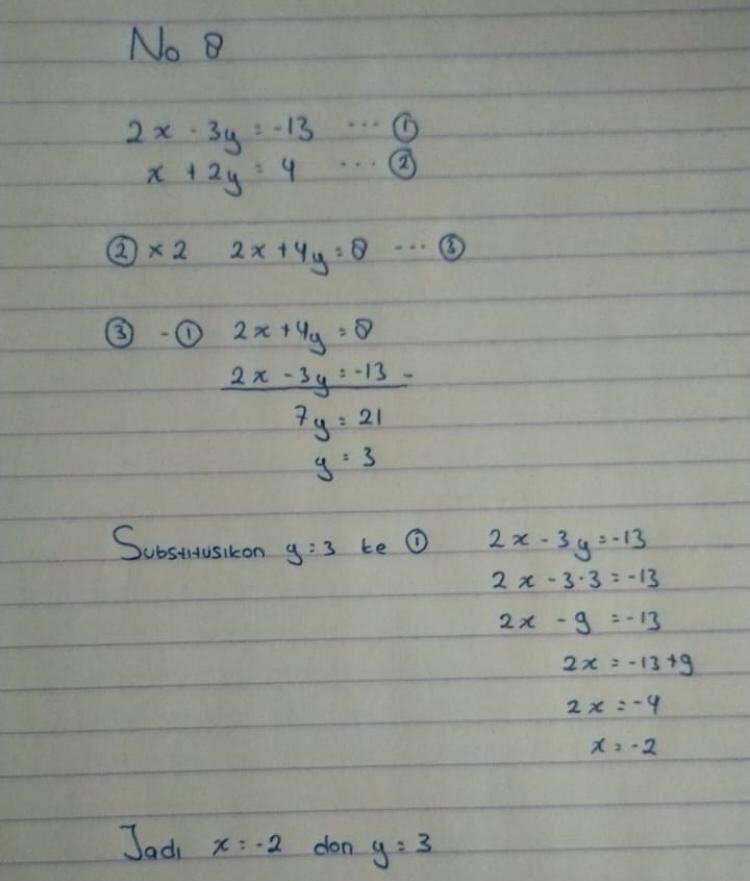 No 8
2x - 3y = -13 ... ①
x + 2y = 4 ... ②
② × 2 2x + 4y = 8 ... ③
③ - ① 2x + 4y = 8
2x - 3y = -13 -
7y = 21
y = 3
Substitusikan y = 3 ke ① 2x - 3y = -13
2x - 3·3 = -13
2x - 9 = -13
2x = -13 + 9
2x = -4
x = -2
Jadi x = -2 dan y = 3